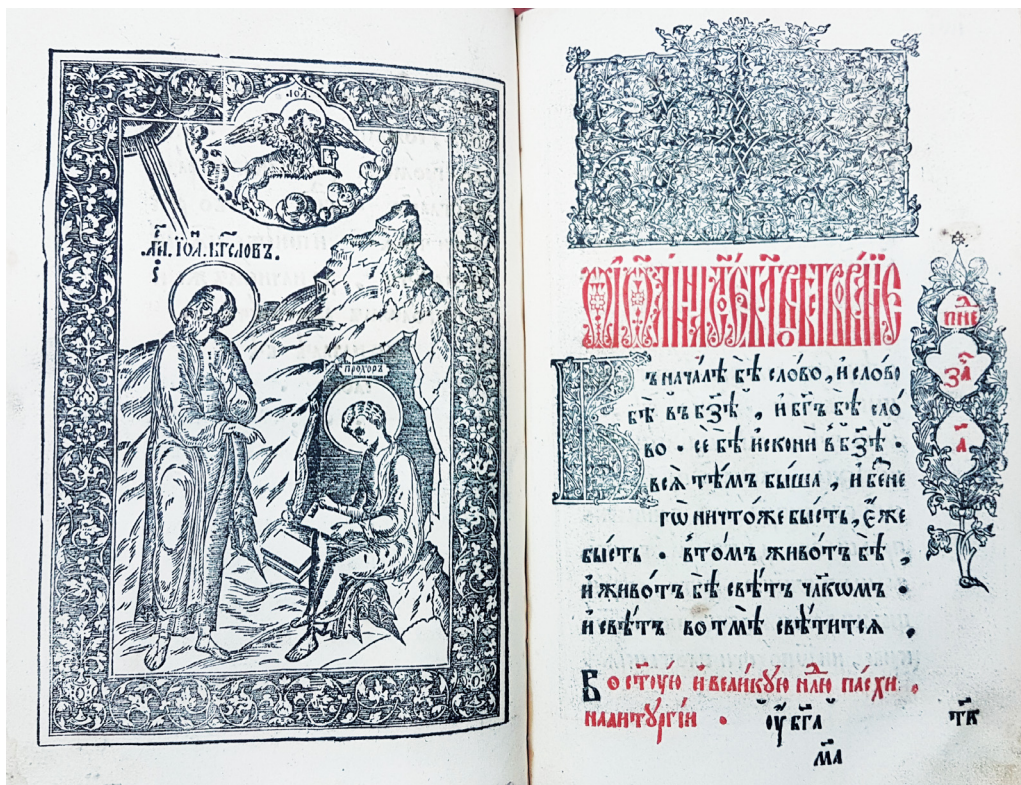 ·ІОА·
а҆гі. і҆ѡ҃а. бг҃сло́въ.
прохоръ
Ѿ І҆ѡа́нна ст҃о́е бл҃говѣствова́нїе
Въ нача́лѣ бѣ̀ сло́во, и҆ сло́во
бѣ̀ въ бз҃ѣ, и҆ бг҃ъ бѣ̀ сло́
во · се бѣ̀ и҆сконѝ в бз҃ѣ ·
всѧ̀ тѣ́мъ бы́ша, и҆ без̾ не
гѡ̀ ничто́же бы́сть, є҆́же
бы́сть · в то́мъ живо́тъ бѣ̀,
и҆ живо́тъ бѣ̀ свѣ́тъ чл҃кѡмъ ·
и҆ свѣ́тъ во тмѣ̀ свѣ́титсѧ,
Во ст҃ꙋ́ю и҆ вели́кꙋю нⷣлю па́схи,
на литꙋргі́и ·
за҄
а҃